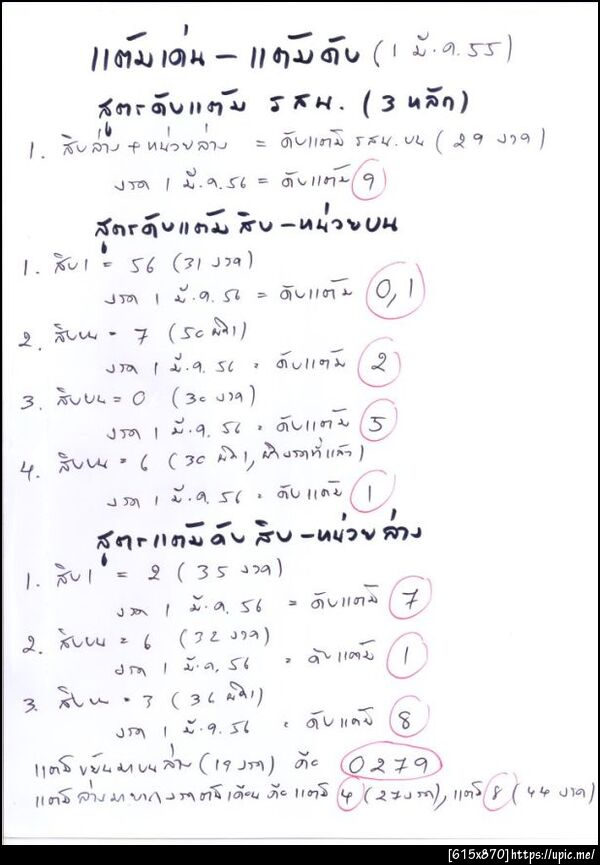 แต้มเด่น - แต้มดับ (1 มี.ค.55)
สูตรดับแต้ม รสน. (3 หลัก)
1. สิบล่าง + หน่วยล่าง = ดับแต้ม รสน.บน (29 งวด)
งวด 1 มี.ค.56 = ดับแต้ม 9
สูตรดับแต้ม สิบ - หน่วยบน
1. สิบ1 = 56 (31 งวด)
งวด 1 มี.ค.56 = ดับแต้ม 0,1
2. สิบบน = 7 (50 ผิด1)
งวด 1 มี.ค.56 = ดับแต้ม 2
3. สิบบน = 0 (30 งวด)
งวด 1 มี.ค.56 = ดับแต้ม 5
4. สิบบน = 6 (30 ผิด1, ผิดงวดที่แล้ว)
งวด 1 มี.ค.56 = ดับแต้ม 1
สูตรแต้มดับ สิบ - หน่วยล่าง
1. สิบ1 = 2 (35 งวด)
งวด 1 มี.ค.56 = ดับแต้ม 7
2. สิบบน = 6 (32 งวด)
งวด 1 มี.ค.56 = ดับแต้ม 1
3. สิบบน = 3 (36 ผิด1)
งวด 1 มี.ค.56 = ดับแต้ม 8
แต้มขยันมาบนล่าง (19 งวด) คือ 0279
แต้มล่างมาจากงวดต้นเดือน คือ แต้ม 4 (27 งวด), แต้ม 8 (44 งวด)
[615x870]https://upic.me/